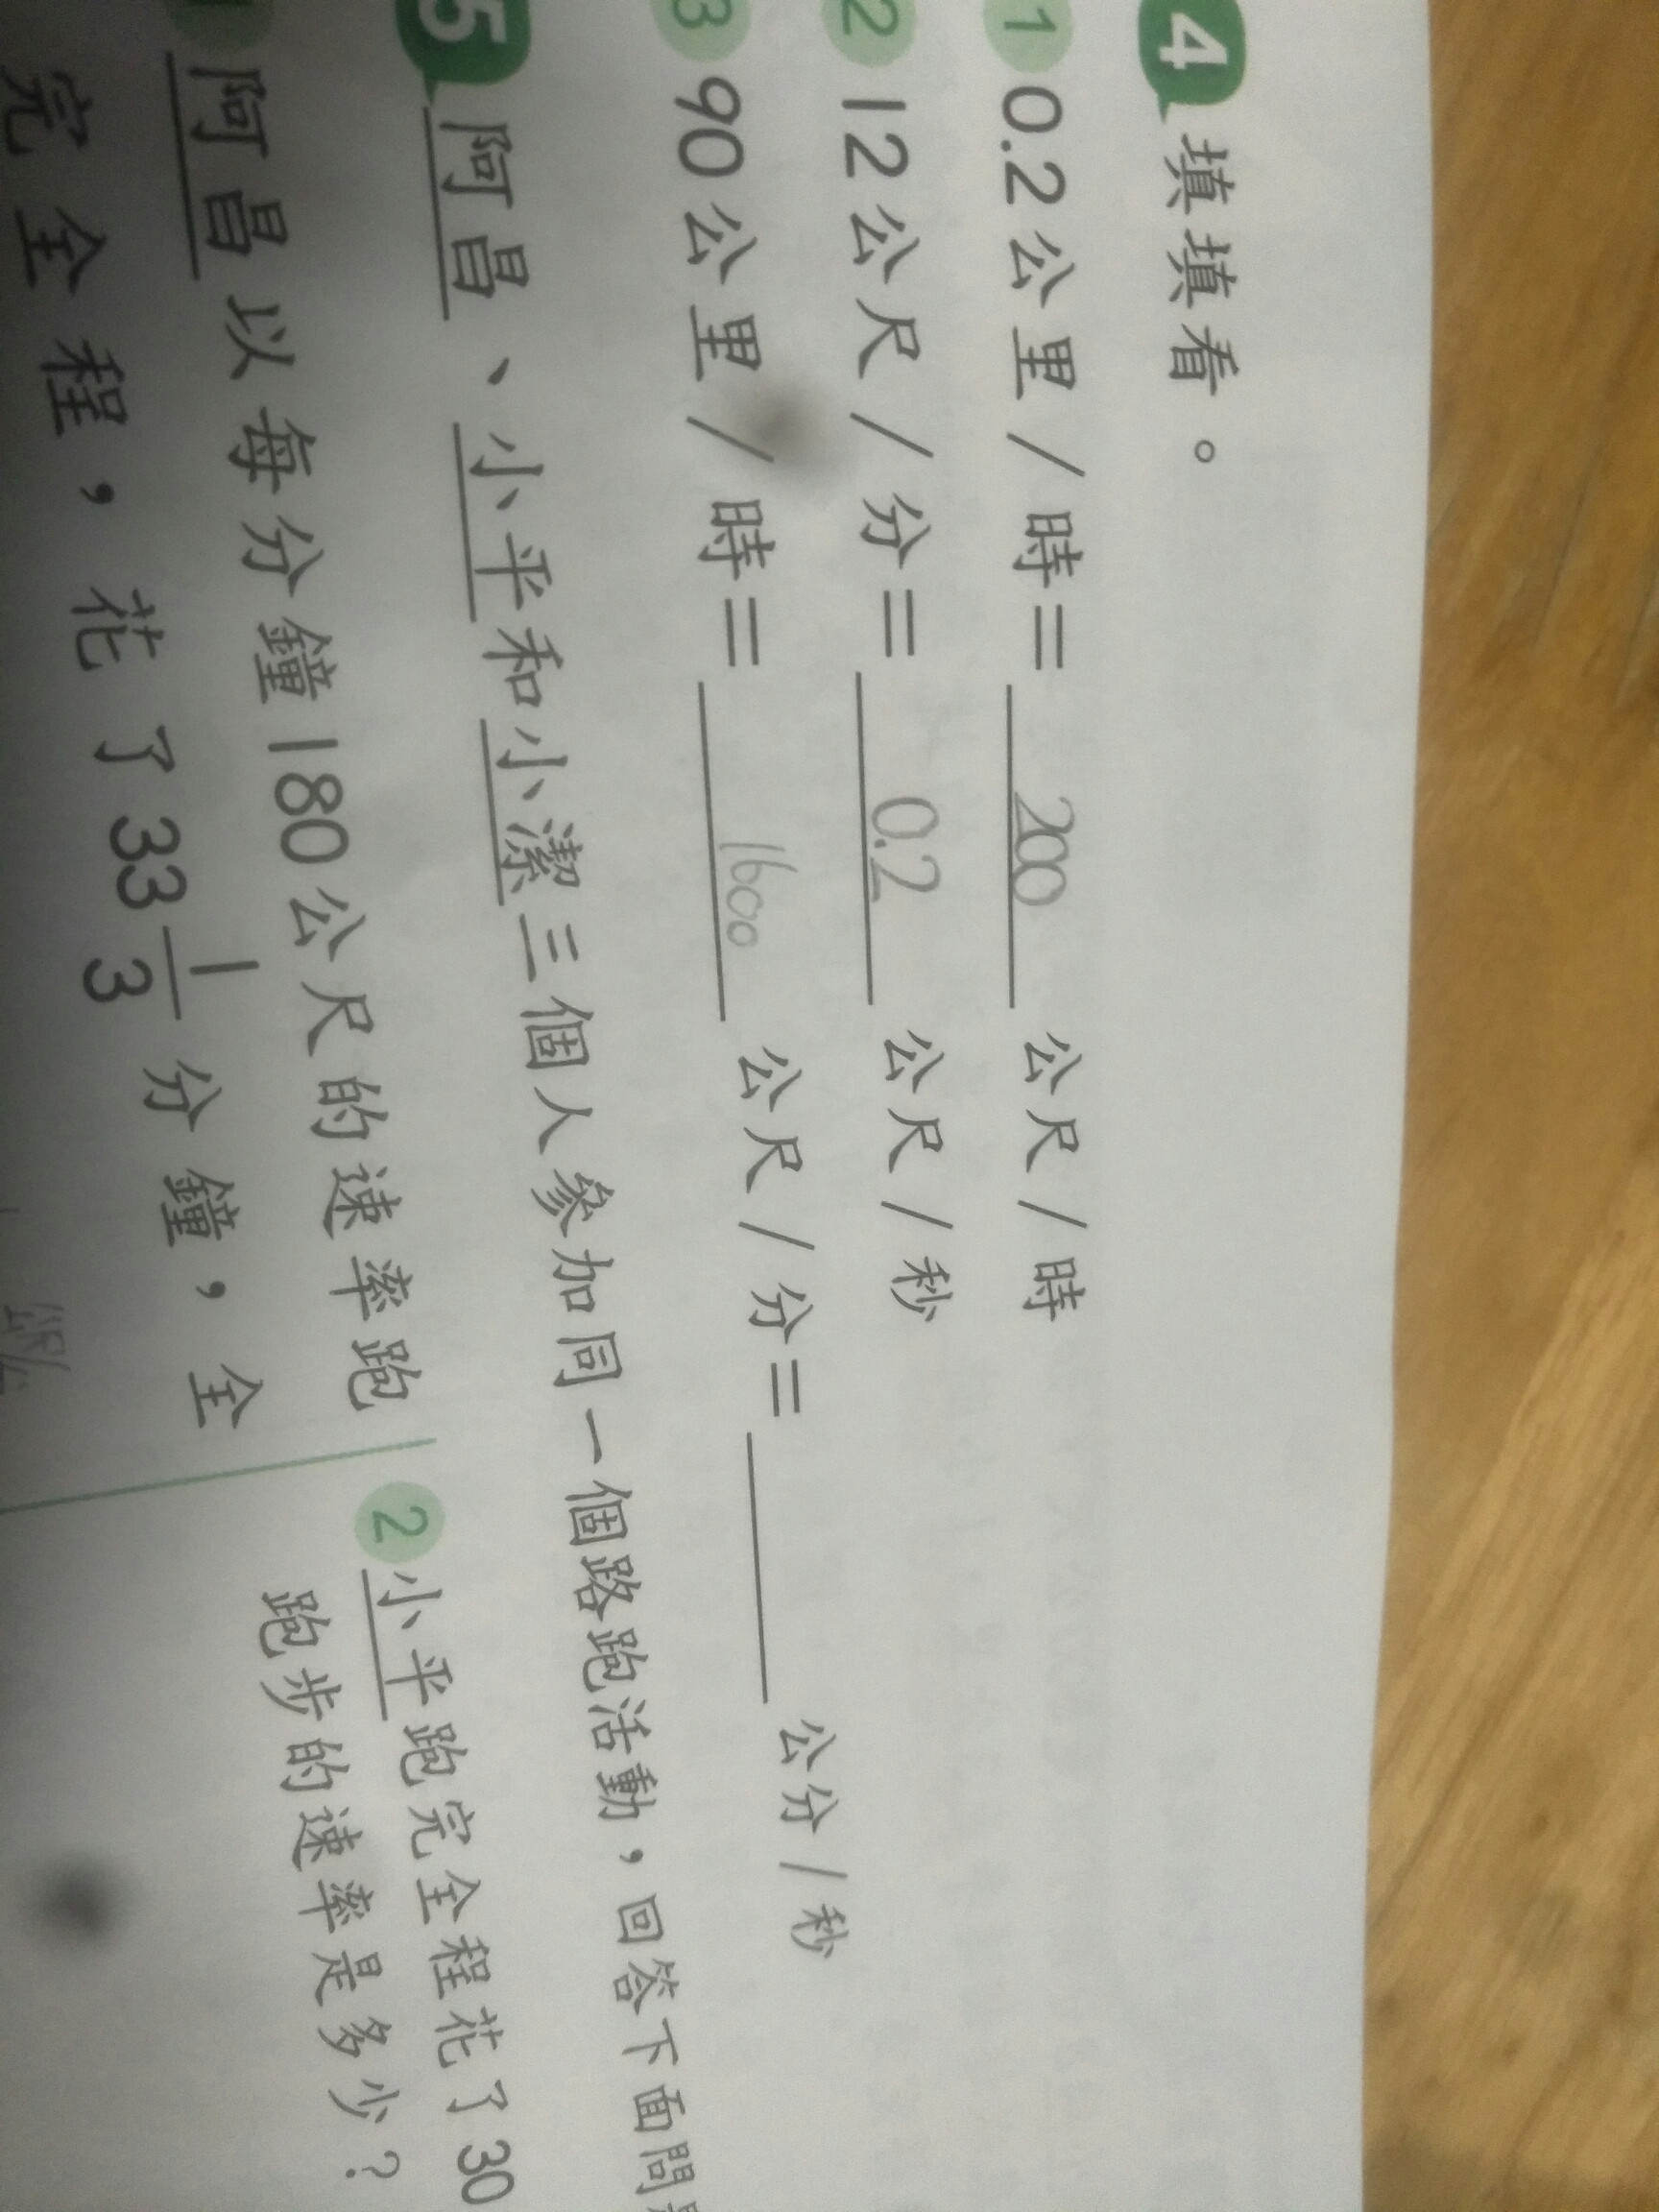 4 填填看。
1 0.2公里/時=200公尺/時
2 12公尺/分=0.2公尺/秒
3 90公里/時=1600公尺/分=____公分/秒
5 阿昌、小平和小潔三個人參加同一個路跑活動，回答下面問
阿昌以每分鐘180公尺的速率跑
完全程，花了33 1/3 分鐘，全
2 小平跑完全程花了30
跑步的速率是多少？